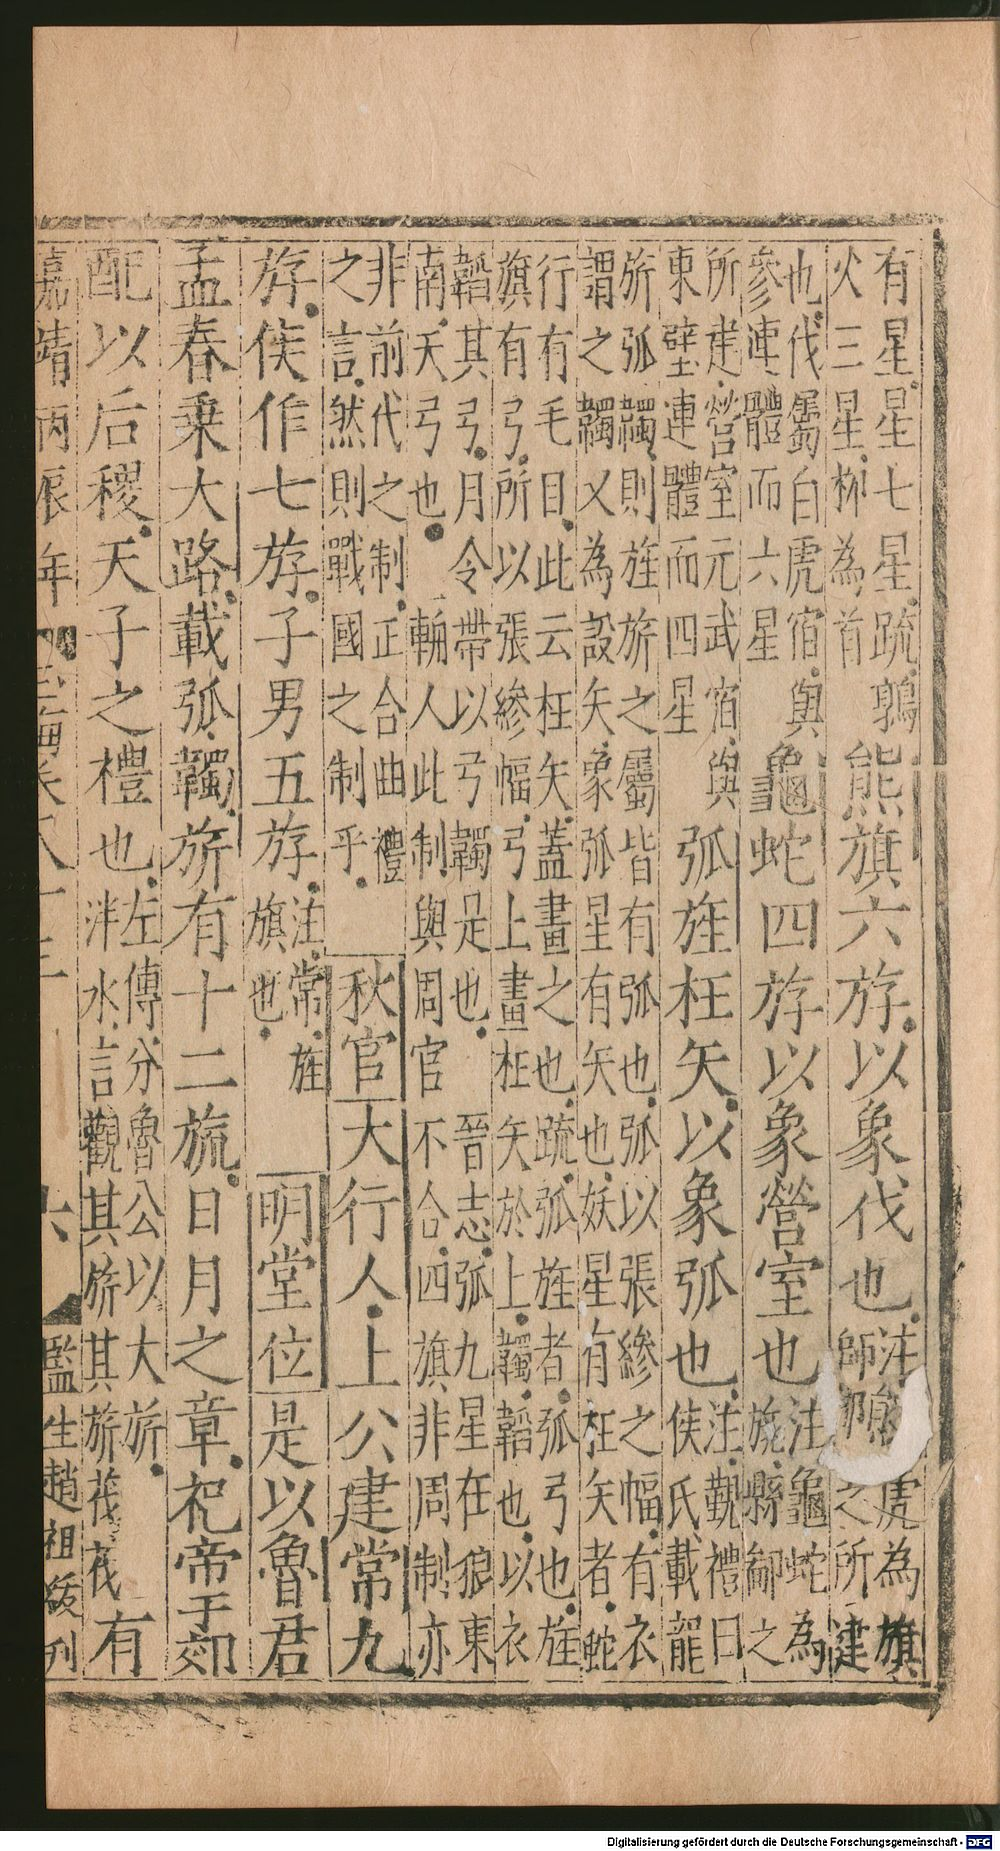 有星星七星疏鶉
火三星柳為首
熊旗六斿以象伐也
注熊虎為旗
師都之所建
也伐屬白虎宿與
參連體而六星
龜蛇四斿以象營室也
注龜蛇為
旐縣鄙之
所建營室元武宿與
東壁連體而四星
弧旌枉矢以象弧也
注覲禮曰
侯氏載龍
旂弧韣則旌旂之屬皆有弧也弧以張縿之幅有衣
謂之韣又為設矢象弧星有矢也妖星有枉矢者蛇
行有毛目此云枉矢蓋畫之也疏弧旌者弧弓也旌
旗有弓所以張縿幅弓上畫枉矢於上韣韜也以衣
韜其弓月令帶以弓韣是也 晉志弧九星在狼東
南天弓也 輈人此制與周官不合四旗非周制亦
非前代之制正合曲禮
之言然則戰國之制乎
秋官大行人上公建常九
斿侯作七斿子男五斿
注常旌
旗也
明堂位是以魯君
孟春乗大路載弧韣旂有十二旒日月之章祀帝于郊
配以后稷天子之禮也
左傳分魯公以大旂
泮水言觀其旂其旂茷茷
有
嘉靖丙辰年 玉海卷八十三 六 監生趙祖刊
Digitalisierung gefördert durch die Deutsche Forschungsgemeinschaft - DFG